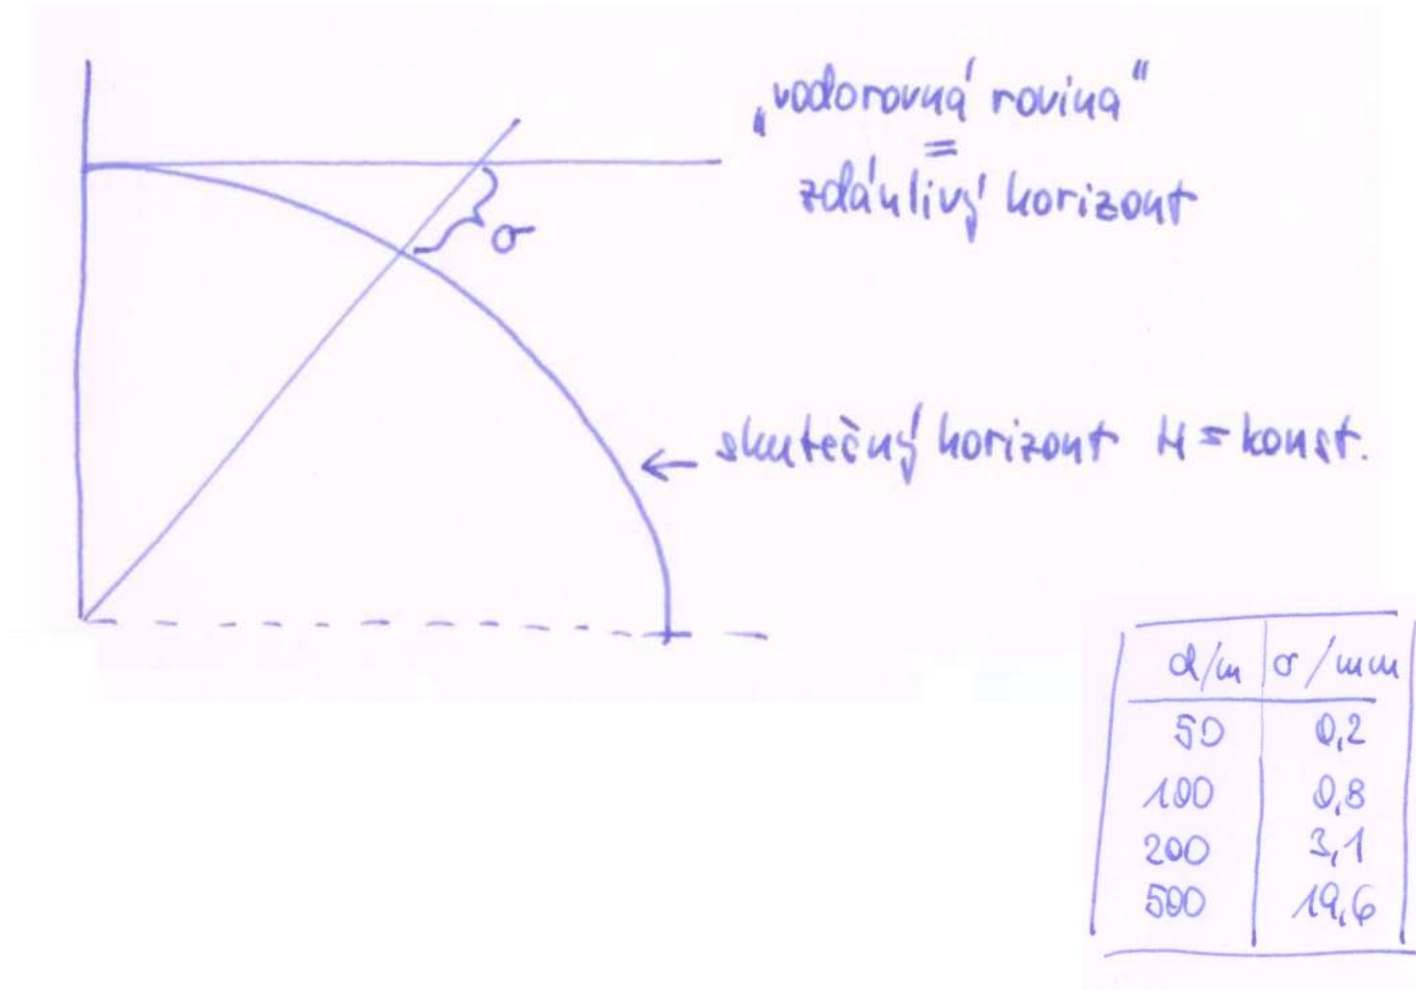 „vodorovná rovina“
=
zdánlivý horizont
σ
← skutečný horizont H = konst.
d/m σ/mm
50 0,2
100 0,8
200 3,1
500 19,6